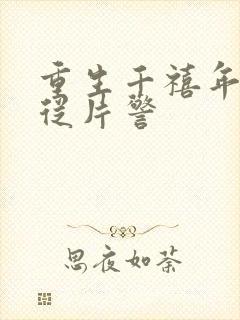 重生千禧年
从片警
思夜如荼